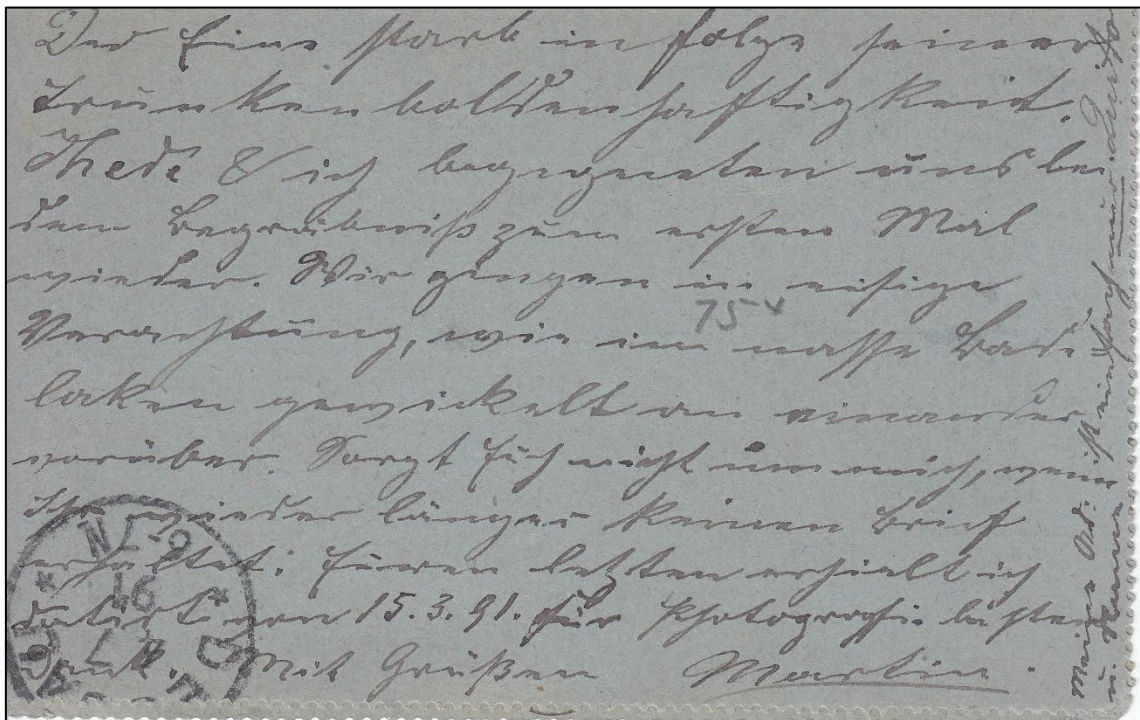 Der Eine starb in folge seiner
Trunkenboldenhaftigkeit.
Thede & ich begegneten uns bei
dem Begräbniß zum ersten Mal
wieder. Wir gingen in eisige
Verachtung, wie in nasse Bade-
laken gewickelt an einander
vorüber. Sorgt Euch nicht um mich, wenn
Ihr wieder länger keinen Brief
erhaltet. Euren letzten erhielt ich
datirt von 15.3.91. Für Photografie besten
Dank. Mit Grüßen Martin.
75
Meine Ad: ist einfach nur: Quito
u. Name
6-7N
91